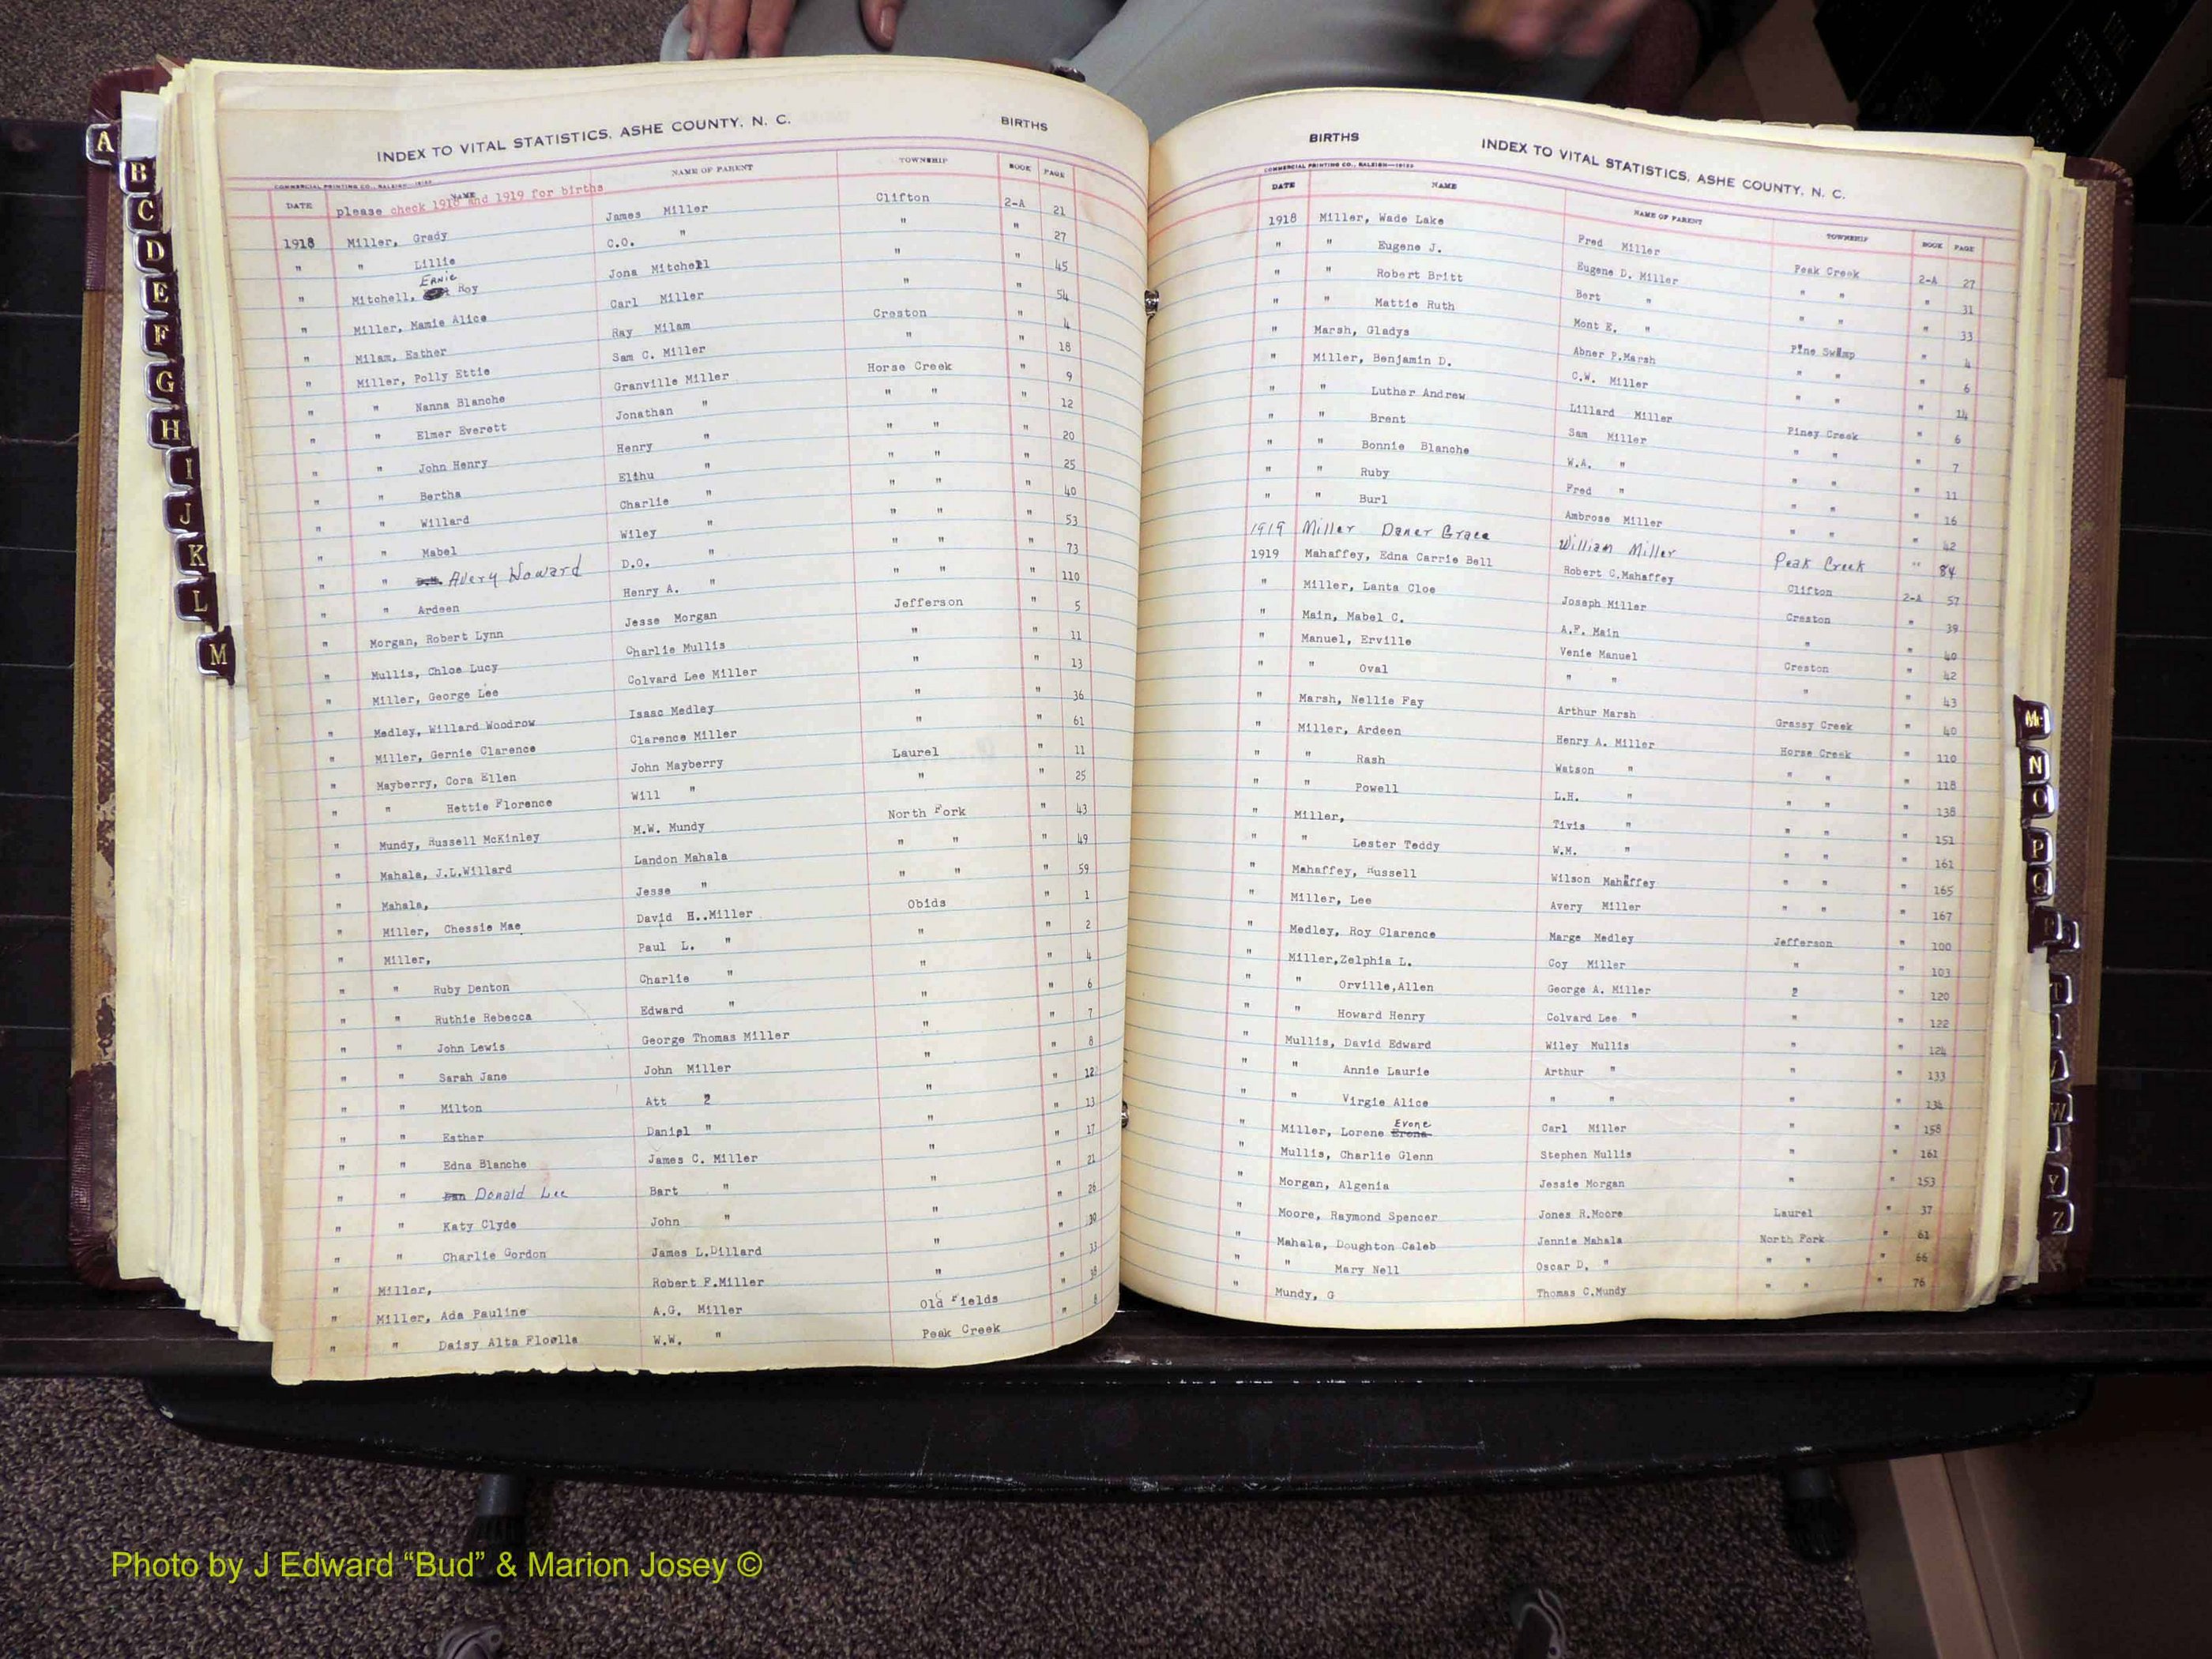 INDEX TO VITAL STATISTICS, ASHE COUNTY, N. C. BIRTHS
COMMERCIAL PRINTING CO., RALEIGH
DATE NAME NAME OF PARENT TOWNSHIP BOOK PAGE
please check 1918 and 1919 for births
1918 Miller, Grady James Miller Clifton 2-A 21
" " Lillie C.O. " " " 27
" Mitchell, Ernie Roy Jona Mitchell " " 45
" Miller, Mamie Alice Carl Miller " " 54
" Milam, Esther Ray Milam Creston " 4
" Miller, Polly Ettie Sam C. Miller " " 18
" " Nanna Blanche Granville Miller Horse Creek " 9
" " Elmer Everett Jonathan " " " " 12
" " John Henry Henry " " " " 20
" " Bertha Elihu " " " " 25
" " Willard Charlie " " " " 40
" " Mabel Wiley " " " " 53
" " Avery Howard D.O. " " " " 73
" " Ardeen Henry A. " " " " 110
" Morgan, Robert Lynn Jesse Morgan Jefferson " 5
" Mullis, Chloe Lucy Charlie Mullis " " 11
" Miller, George Lee Colvard Lee Miller " " 13
" Medley, Willard Woodrow Isaac Medley " " 36
" Miller, Gernie Clarence Clarence Miller " " 61
" Mayberry, Cora Ellen John Mayberry Laurel " 11
" " Hettie Florence Will " " " 25
" Mundy, Russell McKinley M.W. Mundy North Fork " 43
" Mahala, J.L.Willard Landon Mahala " " " 49
" Mahala, Jesse " " " " 59
" Miller, Chessie Mae David H..Miller Obids " 1
" Miller, Paul L. " " " 2
" " Ruby Denton Charlie " " " 4
" " Ruthie Rebecca Edward " " " 6
" " John Lewis George Thomas Miller " " 7
" " Sarah Jane John Miller " " 8
" " Milton Att 2 " " 12
" " Esther Daniel " " " 13
" " Edna Blanche James C. Miller " " 17
" " Donald Lee Bart " " " 21
" " Katy Clyde John " " " 26
" " Charlie Gordon James L.Dillard " " 30
" Miller, Robert F.Miller " " 33
" Miller, Ada Pauline A.G. Miller Old Fields " 38
" " Daisy Alta Floella W.W. " Peak Creek " 8
BIRTHS INDEX TO VITAL STATISTICS, ASHE COUNTY, N. C.
COMMERCIAL PRINTING CO., RALEIGH
DATE NAME NAME OF PARENT TOWNSHIP BOOK PAGE
1918 Miller, Wade Lake Fred Miller Peak Creek 2-A 27
" " Eugene J. Eugene D. Miller " " " 31
" " Robert Britt Bert " " " " 33
" " Mattie Ruth Mont E. " Pine Swamp " 4
" Marsh, Gladys Abner P.Marsh " " " 6
" Miller, Benjamin D. C.W. Miller " " " 14
" " Luther Andrew Lillard Miller Piney Creek " 6
" " Brent Sam Miller " " " 7
" " Bonnie Blanche W.A. " " " " 11
" " Ruby Fred " " " " 16
" " Burl Ambrose Miller " " " 42
1919 Miller Daner Grace William Miller Peak Creek " 84
1919 Mahaffey, Edna Carrie Bell Robert C.Mahaffey Clifton 2-A 57
" Miller, Lanta Cloe Joseph Miller Creston " 39
" Main, Mabel C. A.F. Main " " 40
" Manuel, Erville Venie Manuel Creston " 42
" " Oval " " " " 43
" Marsh, Nellie Fay Arthur Marsh Grassy Creek " 40
" Miller, Ardeen Henry A. Miller Horse Creek " 110
" " Rash Watson " " " " 118
" " Powell L.H. " " " " 138
" Miller, Tivis " " " " 151
" " Lester Teddy W.M. " " " " 161
" Mahaffey, Russell Wilson Mahaffey " " " 165
" Miller, Lee Avery Miller " " " 167
" Medley, Roy Clarence Marge Medley Jefferson " 100
" Miller,Zelphia L. Coy Miller " " 103
" " Orville,Allen George A. Miller 2 " 120
" " Howard Henry Colvard Lee " " " 122
" Mullis, David Edward Wiley Mullis " " 124
" " Annie Laurie Arthur " " " 133
" " Virgie Alice " " " " 134
" Miller, Lorene Evone Carl Miller " " 158
" Mullis, Charlie Glenn Stephen Mullis " " 161
" Morgan, Algenia Jessie Morgan " " 153
" Moore, Raymond Spencer Jones R.Moore Laurel " 37
" Mahala, Doughton Caleb Jennie Mahala North Fork " 61
" " Mary Nell Oscar D. " " " " 66
" Mundy, G Thomas C.Mundy " " " 76
A
B
C
D
E
F
G
H
I
J
K
L
M
Mc
N
O
P
Q
T
W
Y
Z
Photo by J Edward “Bud” & Marion Josey ©